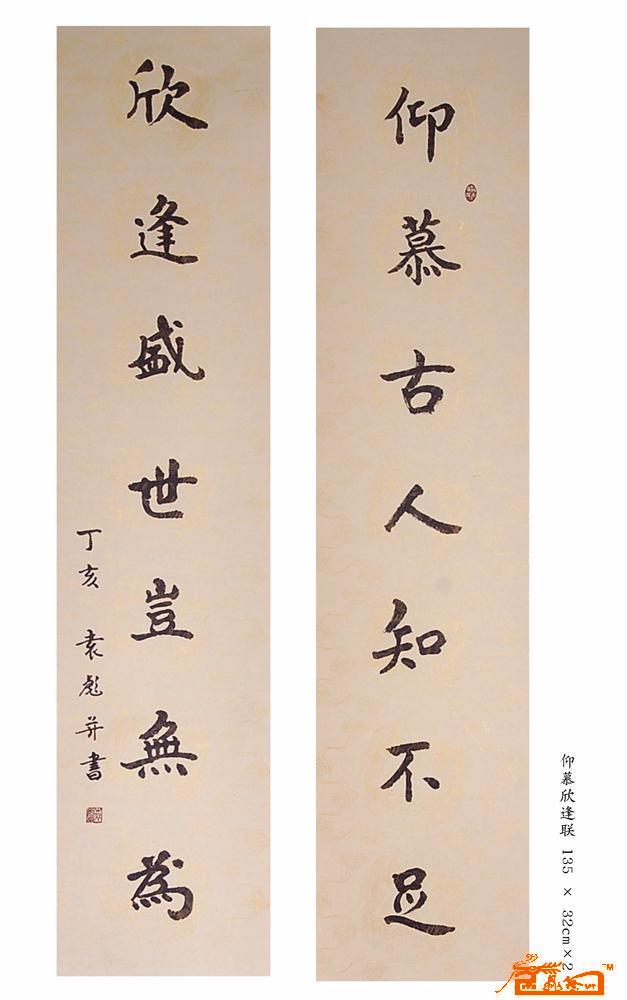 仰慕古人知不足
欣逢盛世豈無為
丁亥 袁彪并書
仰慕欣逢联 135 × 32cm×2